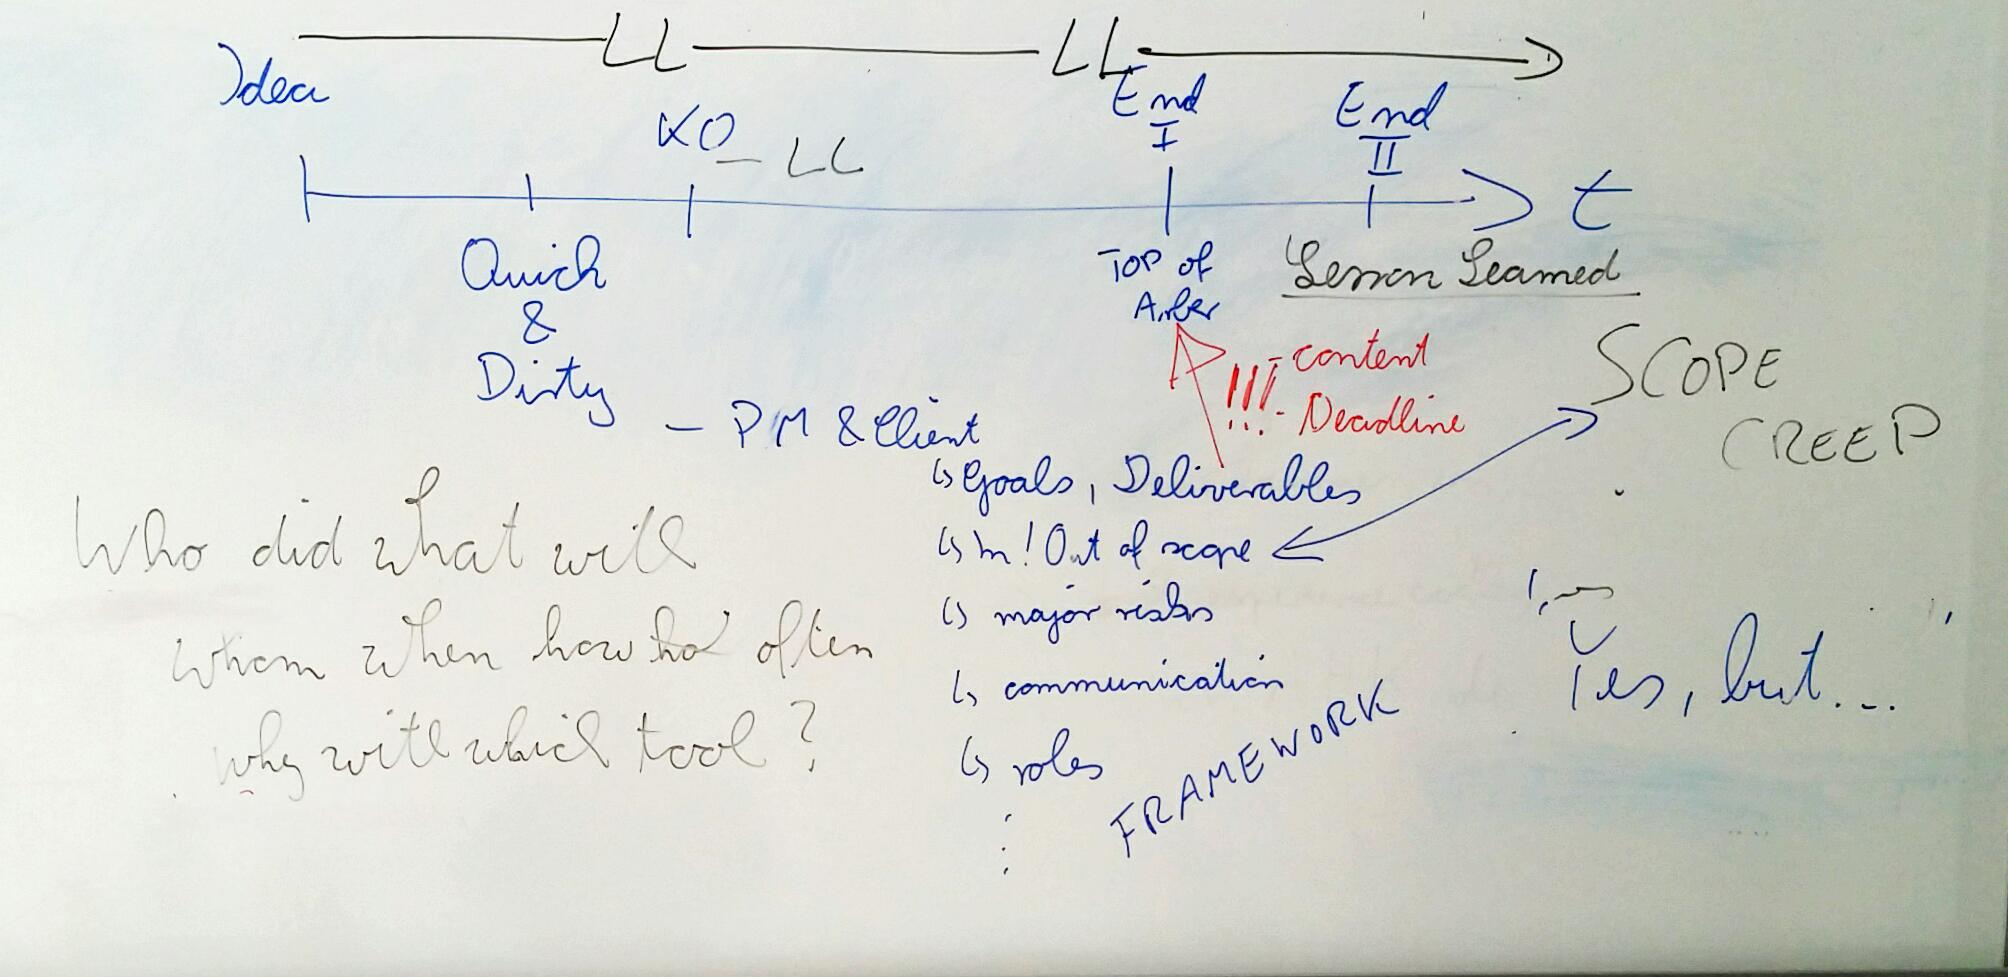 LL LL
Idea
KO - LL
End I
End II
t
Quick
&
Dirty
TOP of
Arber
Lesson Learned
!!! - content
- Deadline
SCOPE
CREEP
- PM & Client
↳ Goals, Deliverables
↳ In! Out of scope
↳ major risks
↳ communication
↳ roles
⋮
FRAMEWORK
Yes, but...
Who did what with
whom when how how often
why with which tool?